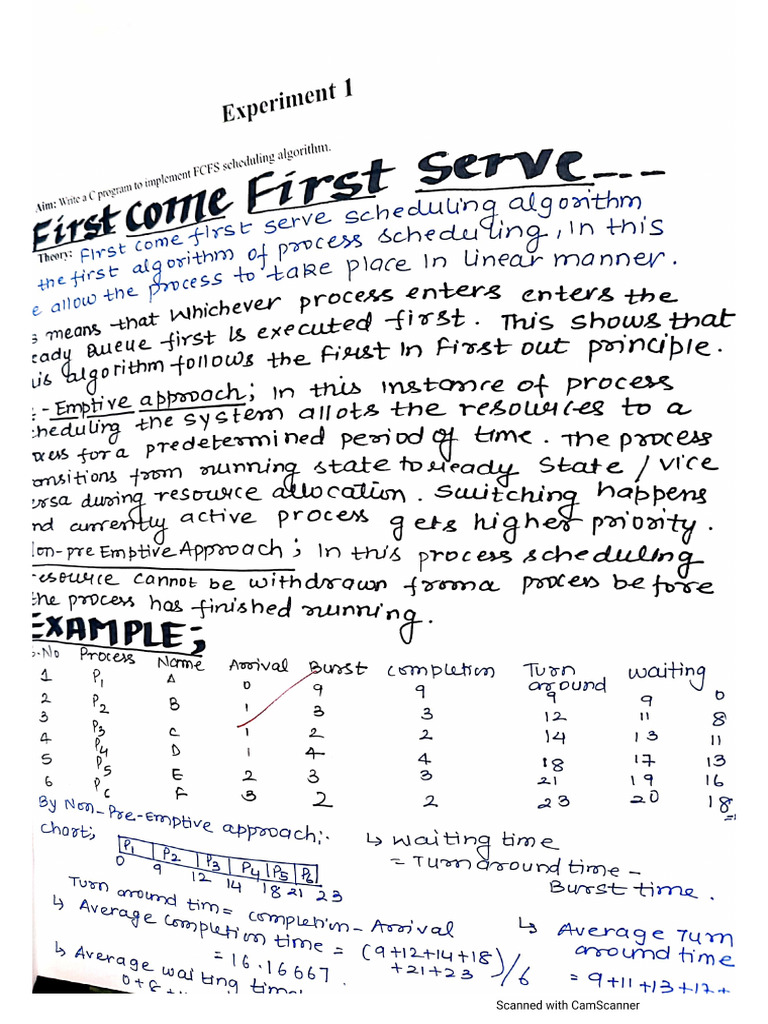 Experiment 1
Aim: Write a C program to implement FCFS scheduling algorithm.
First come First Serve---
Theory: First come first serve scheduling algorithm
the first algorithm of process scheduling, In this
e allow the process to take place in linear manner.
s means that whichever process enters enters the
eady Queue first is executed first. This shows that
is algorithm follows the first in first out principle.
e-Emptive approach; In this instance of process
cheduling the system allots the resources to a
ocess for a predetermined period of time. The process
ansitions from running state to ready state / vice
ersa during resource allocation. Switching happens
nd currently active process gets higher priority.
Non-pre Emptive Approach; In this process scheduling
resource cannot be withdrawn from a process before
the process has finished running.
EXAMPLE;
S.No Process Name Arrival Burst completion Turn around waiting
1 P1 A 0 9 9 9 9 0
2 P2 B 1 3 3 12 11 8
3 P3 C 1 2 2 14 13 11
4 P4 D 1 4 4 18 17 13
5 P5 E 2 3 3 21 19 16
6 P6 F 3 2 2 23 20 18
By Non-Pre-emptive approach;.
chart;
P1 P2 P3 P4 P5 P6
0 9 12 14 18 21 23
↳ waiting time
= Turn around time -
Burst time.
Turn around tim = completion - Arrival
↳ Average completion time = (9+12+14+18
+21+23)/6
= 16.16667.
↳ Average Turn
around time
= 9+11+13+17+
↳ Average waiting time
0+8+
Scanned with CamScanner